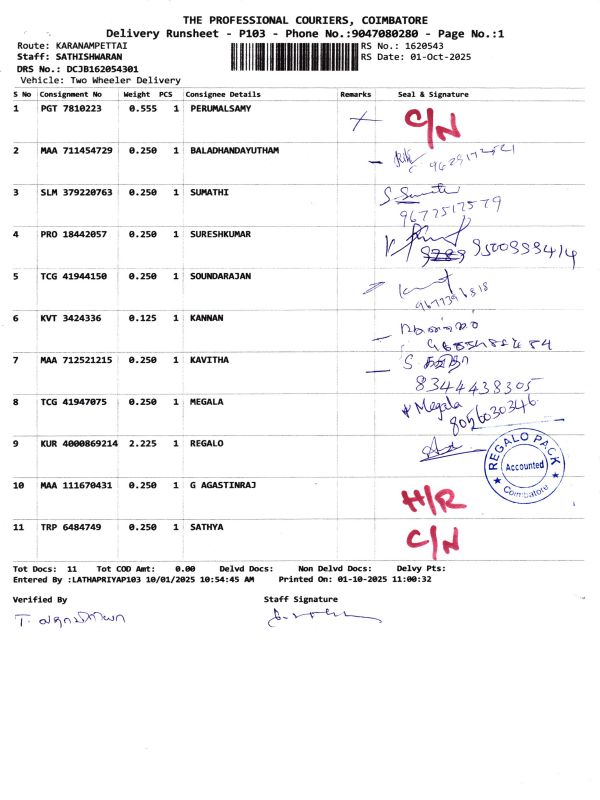 THE PROFESSIONAL COURIERS, COIMBATORE
Delivery Runsheet - P103 - Phone No.:9047080280 - Page No.:1
Route: KARANAMPETTAI RS No.: 1620543
Staff: SATHISHWARAN RS Date: 01-Oct-2025
DRS No.: DCJB162054301
Vehicle: Two Wheeler Delivery
S No Consignment No Weight PCS Consignee Details Remarks Seal & Signature
1 PGT 7810223 0.555 1 PERUMALSAMY C/N
2 MAA 711454729 0.250 1 BALADHANDAYUTHAM
3 SLM 379220763 0.250 1 SUMATHI
9677517579
4 PRO 18442057 0.250 1 SURESHKUMAR
5 TCG 41944150 0.250 1 SOUNDARAJAN
6 KVT 3424336 0.125 1 KANNAN
7 MAA 712521215 0.250 1 KAVITHA
8344438305
8 TCG 41947075 0.250 1 MEGALA Megala
8056030346
9 KUR 4000869214 2.225 1 REGALO
REGALO PACK
Accounted
Coimbatore
10 MAA 111670431 0.250 1 G AGASTINRAJ H/R
11 TRP 6484749 0.250 1 SATHYA C/N
Tot Docs: 11 Tot COD Amt: 0.00 Delvd Docs: Non Delvd Docs: Delvy Pts:
Entered By :LATHAPRIYAP103 10/01/2025 10:54:45 AM Printed On: 01-10-2025 11:00:32
Verified By Staff Signature